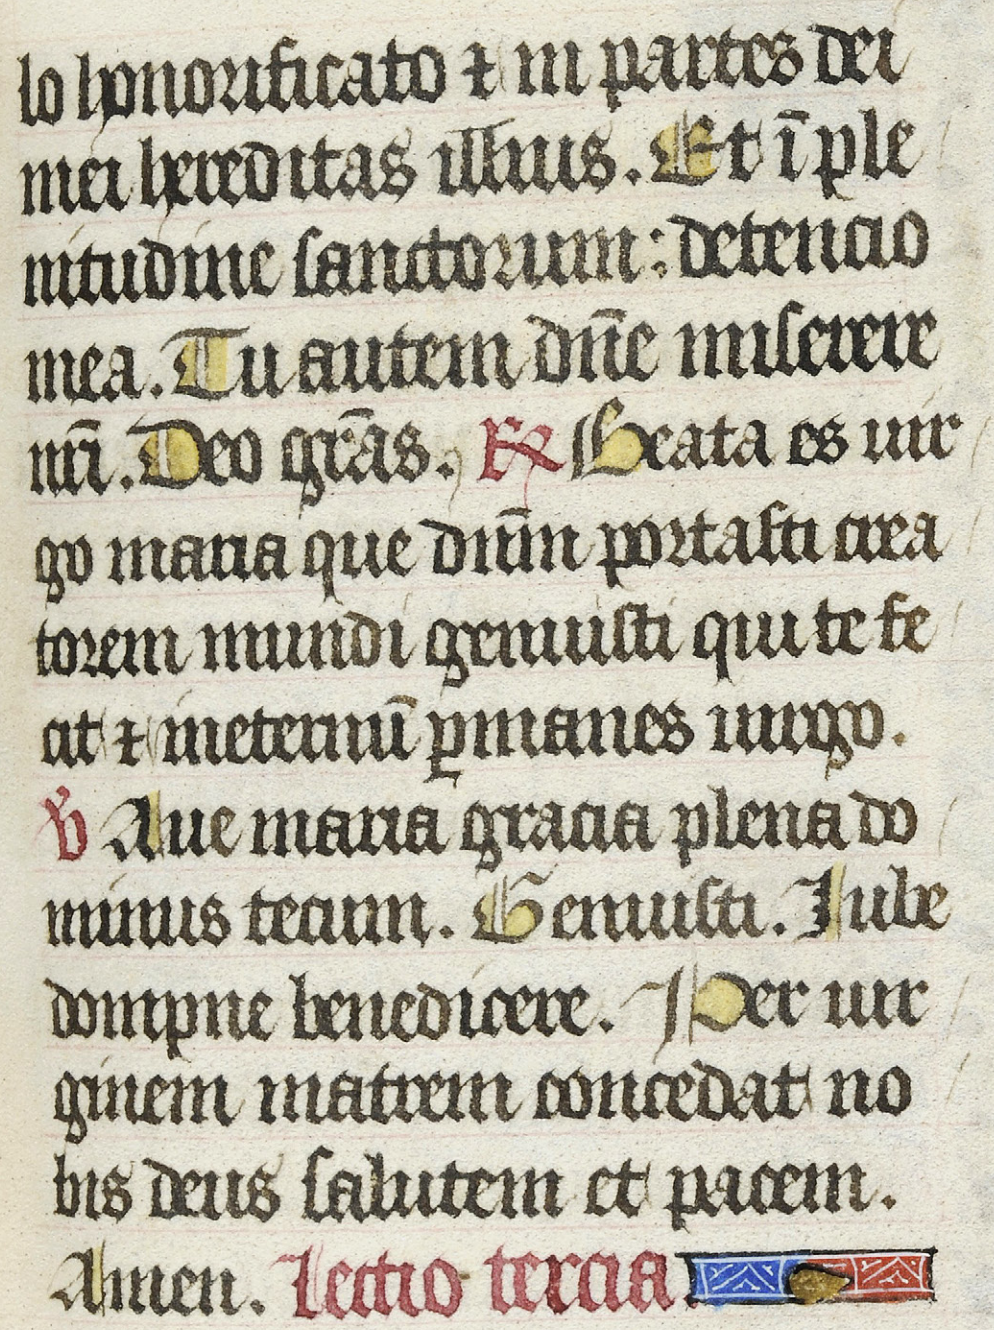 lo honorificato ⁊ in partes dei
mei hereditas illius. Et ī ple
nitudine sanctorum: detencio
mea. Tu autem dñe miserere
nr̄i. Deo grās. ℟ Beata es uir
go maria que dnm̄ portasti crea
torem mundi genuisti qui te fe
cit ⁊ ineternū ꝑmanes uirgo.
℣ Aue maria gracia plena do
minus tecum. Genuisti. Iube
dompne benedicere. Per uir
ginem matrem concedat no
bis deus salutem et pacem.
Amen. Lectio tercia.